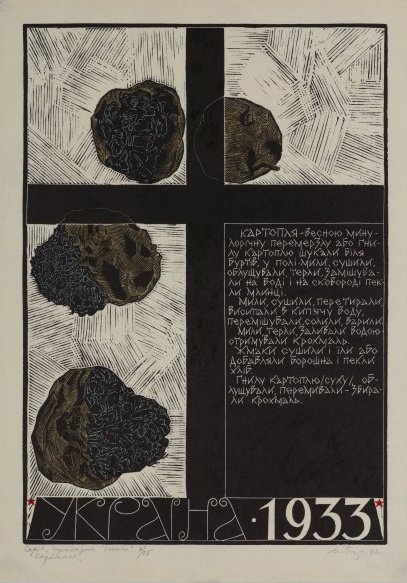 КАРТОПЛЯ-ВЕСНОЮ МИНУ-
ЛОРІЧНУ ПЕРЕМЕРЗЛУ АБО ГНИ-
ЛУ КАРТОПЛЮ ШУКАЛИ БІЛЯ
БУРТІВ, У ПОЛІ МИЛИ, СУШИЛИ,
ОБЛУЩУВАЛИ, ТЕРЛИ, ЗАМІШУВА-
ЛИ НА ВОДІ І НА СКОВОРОДІ ПЕК-
ЛИ МЛИНЦІ.
МИЛИ, СУШИЛИ, ПЕРЕТИРАЛИ,
ВИСИПАЛИ В КИПЯЧУ ВОДУ,
ПЕРЕМІШУВАЛИ, СОЛИЛИ, ВАРИЛИ.
МИЛИ, ТЕРЛИ, ЗАЛИВАЛИ ВОДОЮ-
ОТРИМУВАЛИ КРОХМАЛЬ.
ЖМАКИ СУШИЛИ І ЇЛИ АБО
ДОБАВЛЯЛИ БОРОШНА І ПЕКЛИ
ХЛІБ.
ГНИЛУ КАРТОПЛЮ/СУХУ/ ОБ-
ЛУЩУВАЛИ, ПЕРЕМИВАЛИ-ЗБИРА-
ЛИ КРОХМАЛЬ.
УКРАЇНА·1933
Серія
"Картопля"